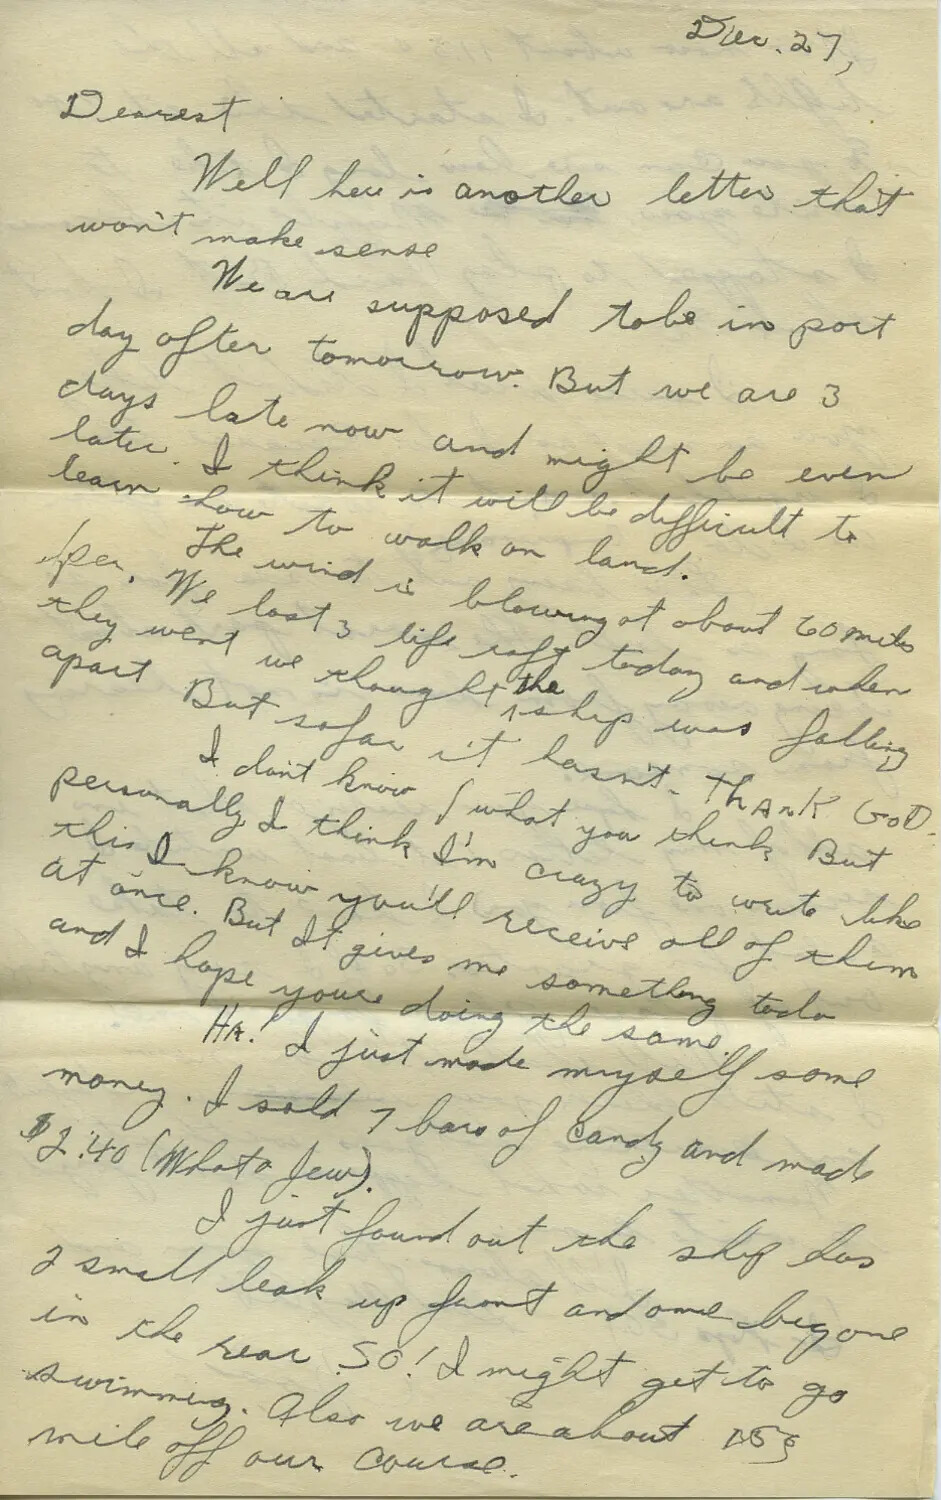 Dec. 27,
Dearest
Well here is another letter that
won't make sense
We are supposed tobe in port
day after tomorrow. But we are 3
days late now and might be even
later. I think it will be difficult to
learn how to walk on land.
The wind is blowing at about 60 miles
per. We lost 3 life raft today and when
they went we thought the ship was falling
apart
But sofar it hasn't - THANK GOD.
I don't know what you think But
personally I think I'm crazy to write like
this I know you'll receive all of them
at once. But It gives me something todo
and I hope youre doing the same.
HA! I just made myself some
money. I sold 7 bars of candy and made
$2.40 (What a Jew).
I just found out the ship has
2 small leak up front and one big one
in the rear SO! I might get to go
swimming. Also we are about
mile off our course.